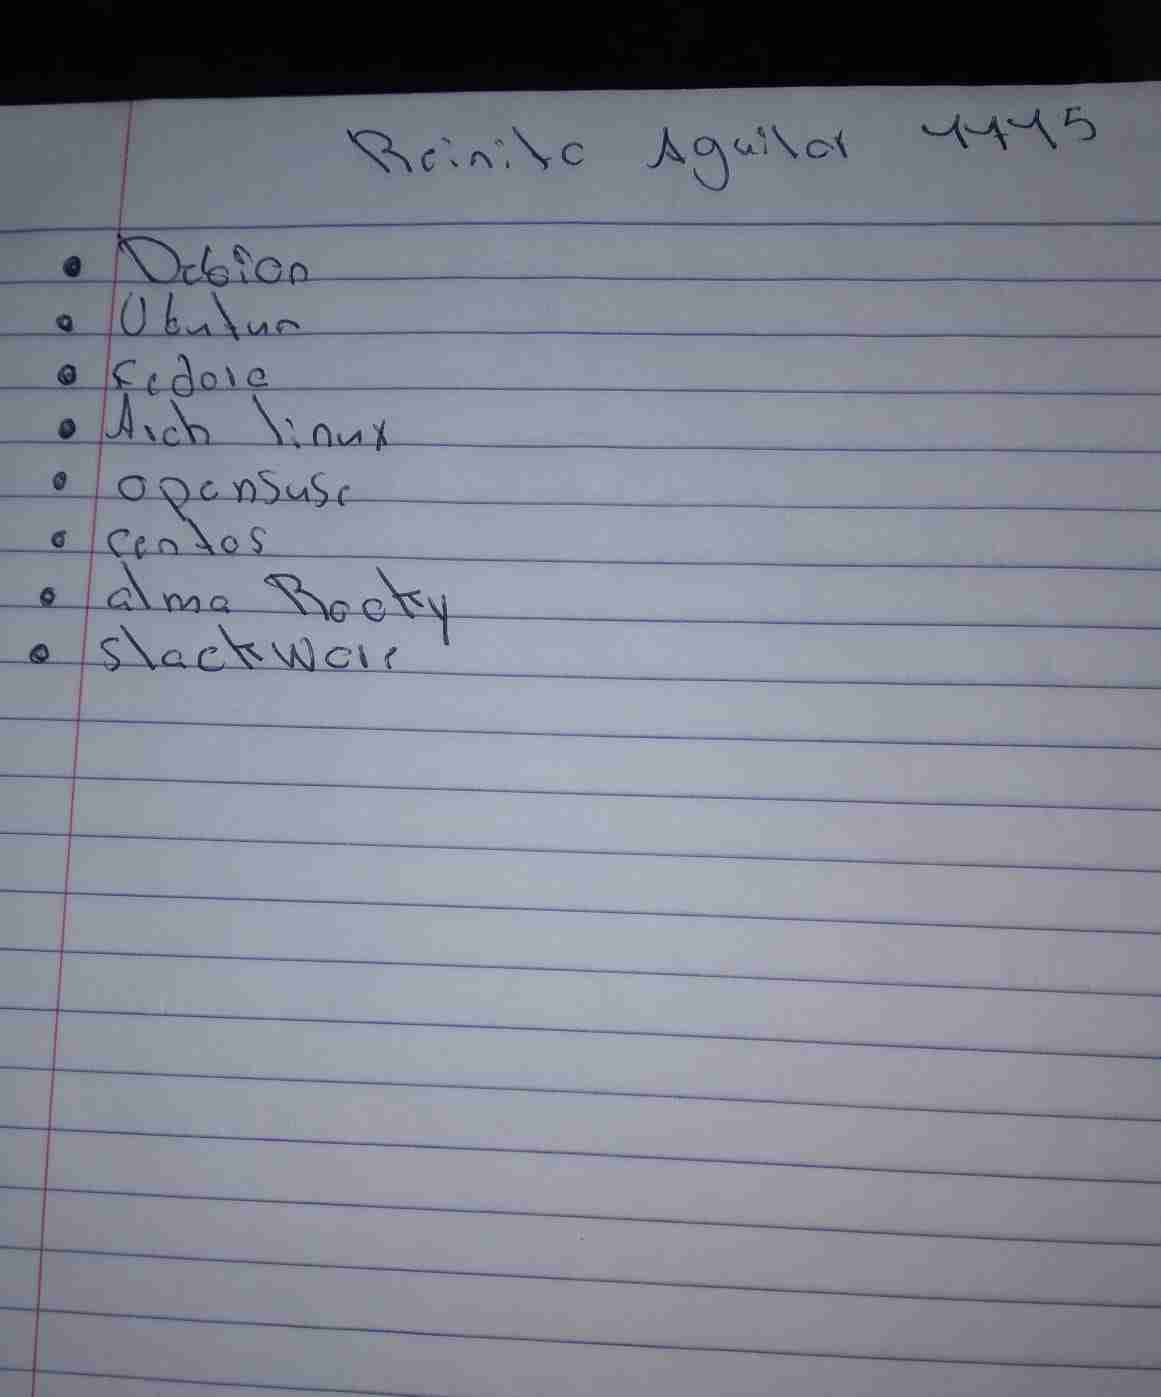 Reinita Aguilar
• Debian
• Ubutun
• Fedora
• Arch linux
• opensuse
• centos
• alma Rocky
• slackware